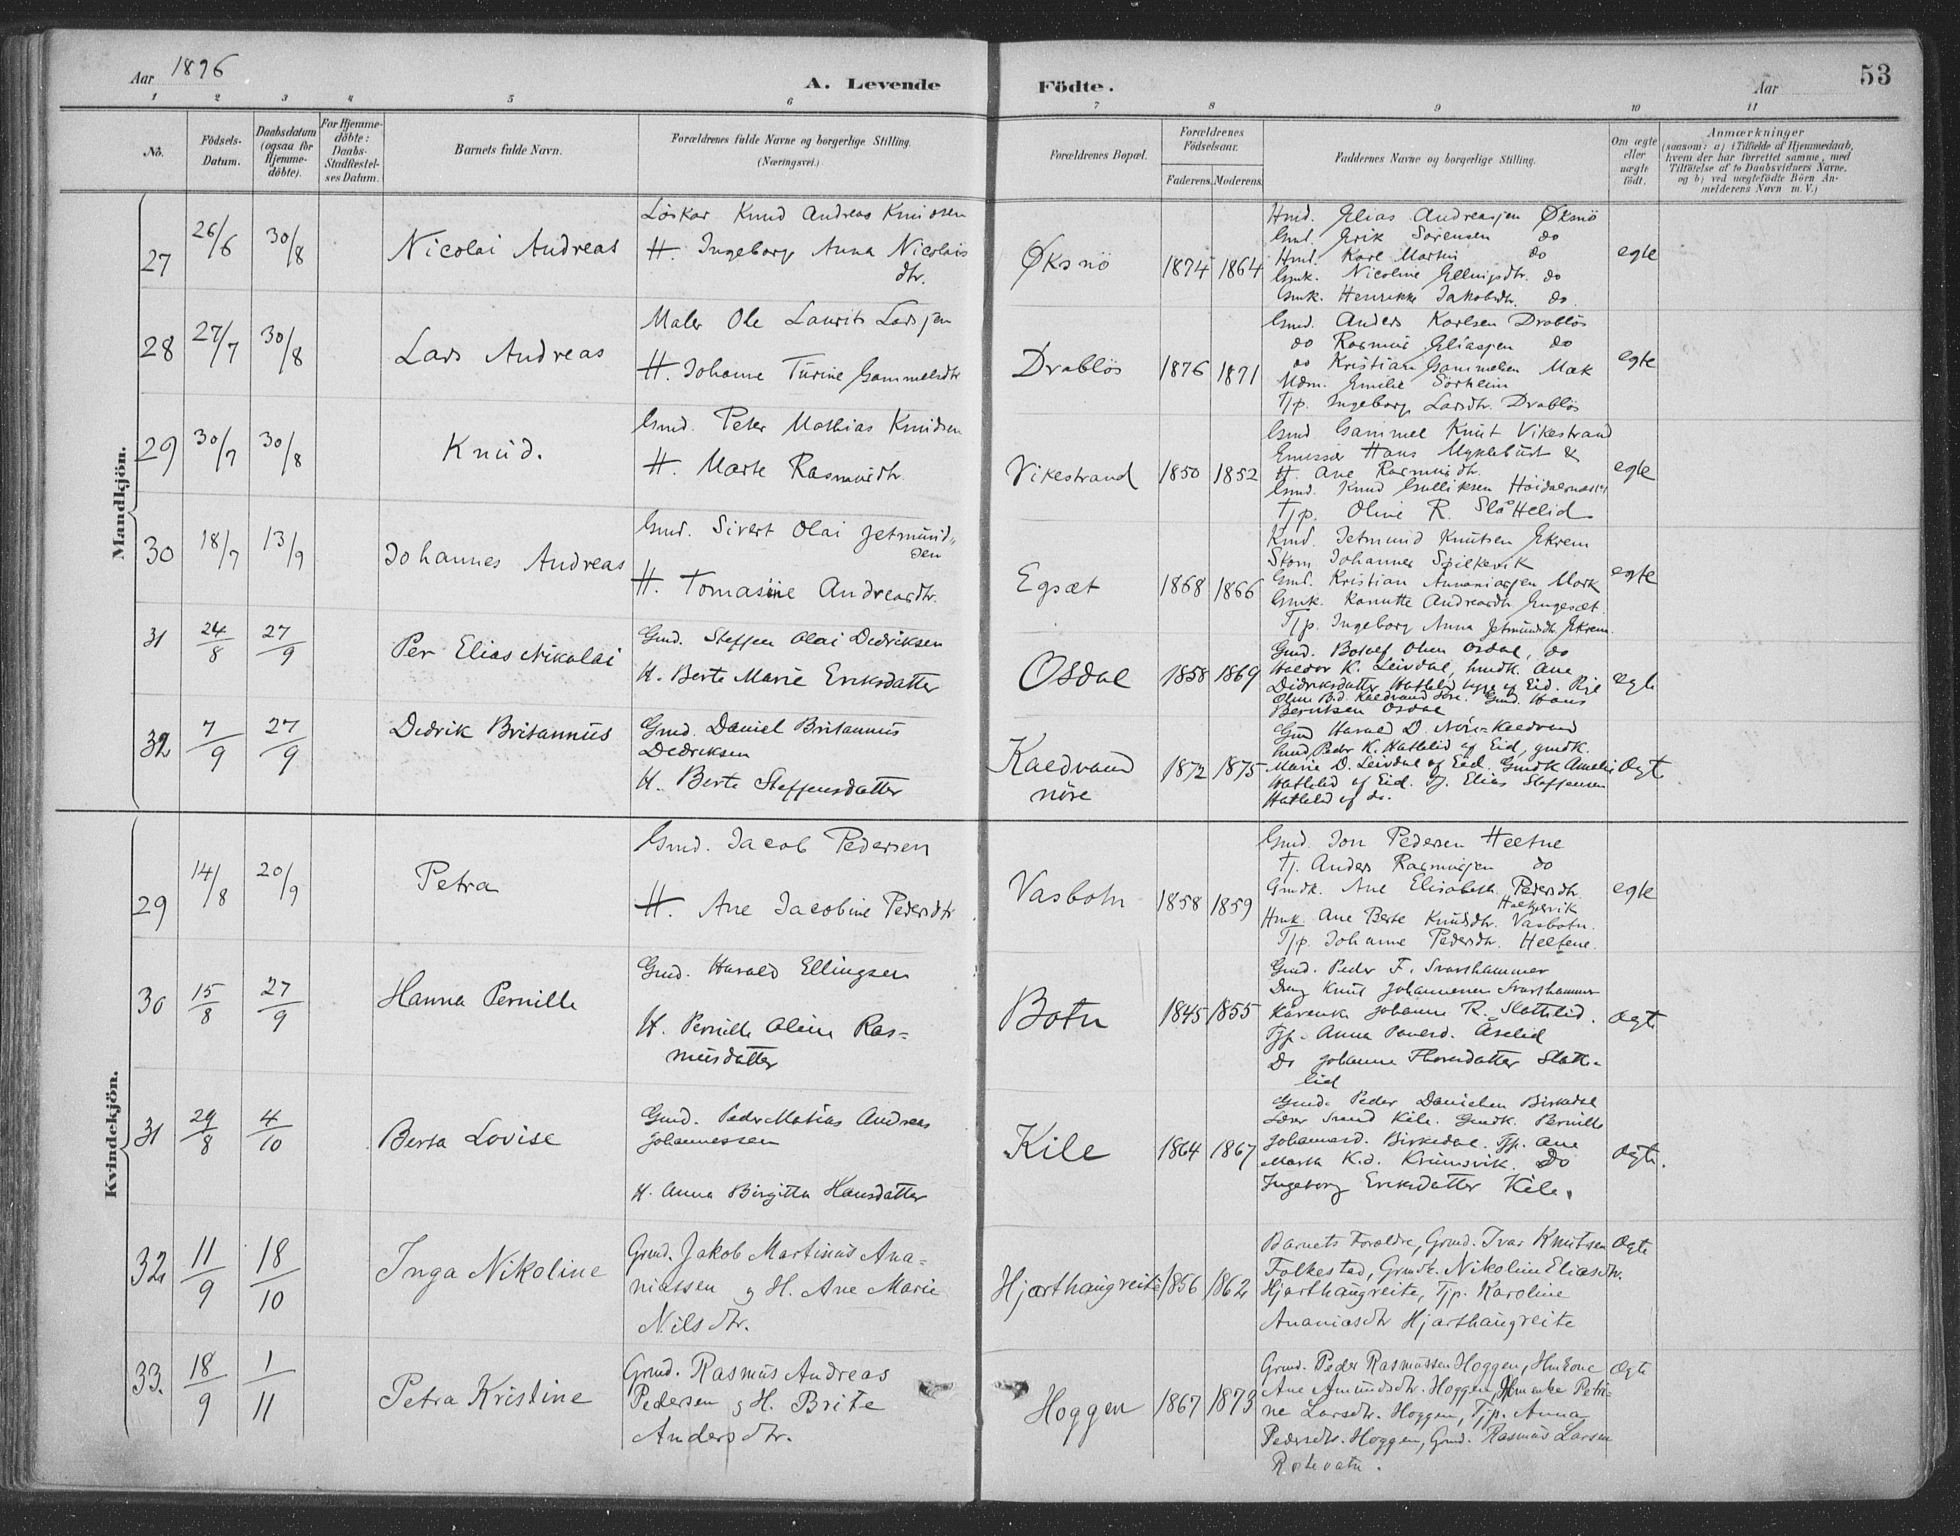 Aar 1896
A. Levende Födte.
Aar
53
1 2 3 4 5 6 7 8 9 10 11
No.
Födsels-
Datum.
Daabsdatum
(ogsaa for
Hjemme-
döbte).
For Hjemme-
döbte:
Daabs-
Stadfæstel-
ses Datum.
Barnets fulde Navn.
Forældrenes fulde Navne og borgerlige Stilling.
(Næringsvei.)
Forældrenes Bopæl.
Forældrenes
Födselsaar.
Faderens. Moderens.
Faddernes Navne og borgerlige Stilling.
Om ægte
eller
uægte
födt.
Anmærkninger
(saasom: a) i Tilfælde af Hjemmedaab,
hvem der har forrettet samme, med
Tilföielse af to Daabsvidners Navne,
og b) ved uægtefödte Börn An-
melderens Navn m. V.)
Mandkjön.
27
26/6
30/8
Nicolai Andreas
Löskar Knud Andreas Knudsen
H. Ingeborg Anna Nicolais
dtr.
Øksnö
1874
1864
Hmd. Elias Andreasjen Øksnö
Gmd. Erik Sörensen do
Hmd. Karl Martin do
Gmk. Nicoline Ellingsdtr. do
Gmk. Henrikke Jakobsdtr. do.
egte
28
27/7
30/8
Lars Andreas
Maler Ole Laurits Larsjen
H. Johanne Turine Gammelsdtr
Drablös
1876
1871
Gmd. Anders Karlsen Drablös
do Rasmus Eliasjen do
do Kristian Gammelsen Mæk
Mdm. Emilie Sörheim
Tjp. Ingeborg Larsdtr. Drablös
egte
29
30/7
30/8
Knud.
Gmd. Peter Mathias Knudsen
H. Marte Rasmusdtr.
Vikestrand
1850
1852
Gmd Gammel Knut Vikestrand
Emissær Hans Myklebust &
H. Ane Rasmusdtr.
Gmd. Knud Gulliksen
Tjp. Oline R. Slåttelid
egte
30
18/7
13/9
Johannes Andreas
Gmd. Sivert Olai Jetmund-
sen
H. Tomasine Andreasdtr.
Egsæt
1868
1866
Kmd. Jetmund Knutsen Ekrem
Skom Johannes
Gmd. Kristian Annaniasjen Mork
Gmk. Kanutte Andreasdtr Engesæt.
Tjp. Ingeborg Anna Jetmundsdtr. Ekrem.
egte
31
24/8
27/9
Per Elias Nikolai
Gmd. Steffen Olai Dedriksen
H. Berte Marie Eriksdatter
Osdal
1858
1869
Gmd. Botolf Olsen Osdal, do
Haldor K. Leivdal, hmdk. Ane
Didriksdatter Hatlelid af Eid. Pige
Gmd. Hans
Berntsen Osdal
egt.
32
7/9
27/9
Dedrik Britannus
Gmd. Daniel Britannus
Dedriksen
H. Berte Steffensdatter
Kaldvand
nöre
1872
1875
Gmd Harald D. Nör-Kaldvand
hmd Peder K. Hatlelid af Eid, gmdk.
Marie D. Leivdal af Eid. Gmdk Amalie
Hatlelid af Eid. Tj. Elias Steffensen
Hatlelid af do.
ægt.
Kvindekjön.
29
14/8
20/9
Petra
Gmd. Jacob Pedersen
H. Ane Jacobine Pedersdtr
Vasbotn
1858
1859
Gmd. Jon Pedersen Heltne
Tj. Anders Rasmusjen do
Gmdk. Ane Elisabeth Pedersdtr
Hmk. Ane Berte Knudsdtr. Vasbotn.
Tjp. Johanne Pedersdtr. Heltene.
egte
30
15/8
27/9
Hanna Pernille
Gmd. Harald Ellingsen
H. Pernille Oline Ras-
musdatter
Botn
1845
1855
Gmd. Peder F. Svarthammer
Dreng Knut Johannesen Svarthammer
Kårenke Johanne R. Slottelid.
Tjp. Anna Paulsd. Åselid
Do Johanne Thoresdatter Slatte-
lid
ægt.
31
29/8
4/10
Berta Lovise
Gmd. Peder Matias Andreas
Johannessen
H. Anna Birgitta Hansdatter
Kile
1864
1867
Gmd. Peder Danielsen Birkedal
Lærer Svend Kile. Gmdk. Pernille
Johannesd. Birkedal. Tjp. Ane
Marta K.d. Krumsvik. Do
Ingeborg Eriksdatter Kile.
ægt.
32
11/9
18/10
Inga Nikoline
Grmd. Jakob Martinus Ana-
niassen g H. Ane Marie
Nilsdtr.
Hjarthaugreite
1856
1862
Barnets Forældre, Grmd. Ivar Knutsen
Folkestad, Grmdk. Nikoline Eliasdtr.
Hjarthaugreite, Tjp. Karoline
Ananiasdtr Hjarthaugreite
Ægte
33.
18/9
1/11
Petra Kristine
Grmd. Rasmus Andreas
Pedersen g H. Brite
Andersdtr.
Hoggen
1867
1873
Grmd. Peder Rasmussen Hoggen, Hmkone
Ane Amundsdtr. Hoggen, Hmenke Petri-
ne Larsdtr. Hoggen, Tjp. Anna
Pedersdtr. Hoggen, Grmd. Rasmus Larsen
Rotevatn.
Ægte